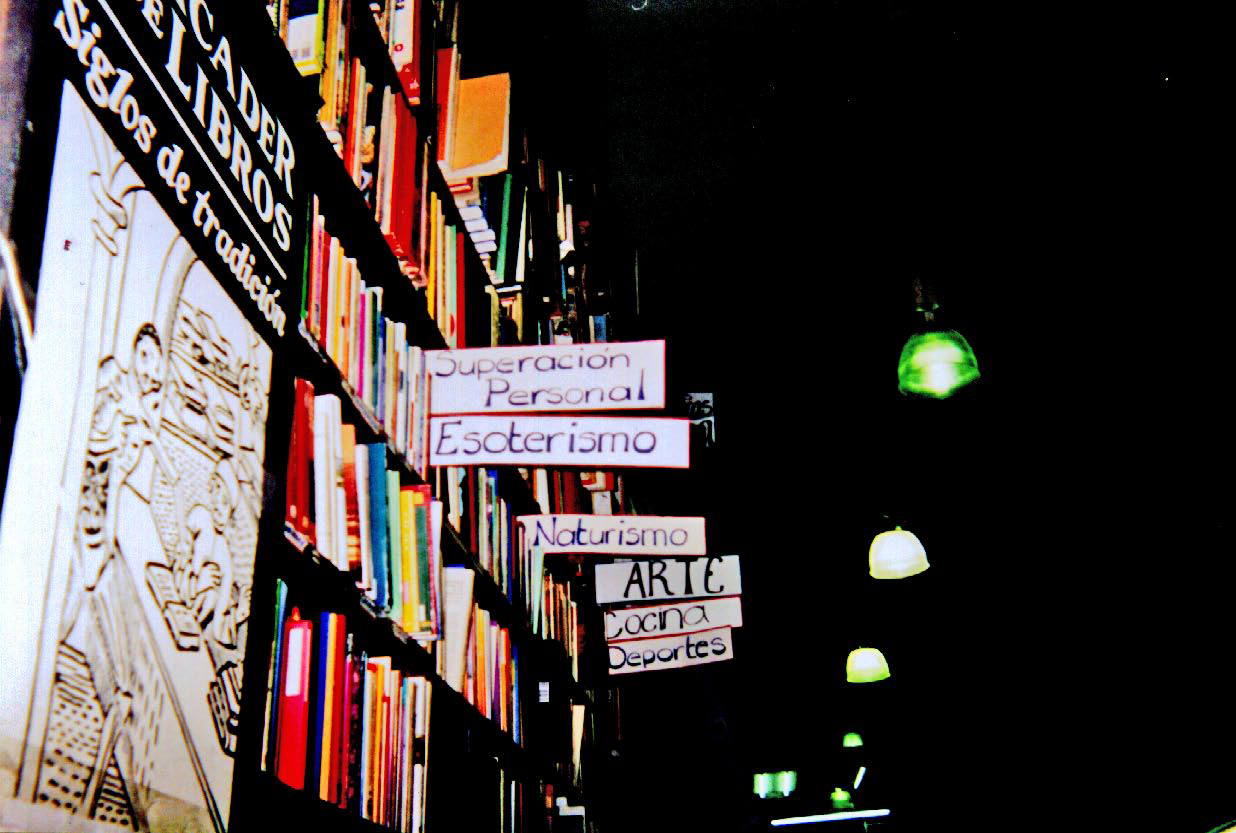 LIBROS
Siglos de tradición
Superación
Personal
Esoterismo
Naturismo
ARTE
Cocina
Deportes